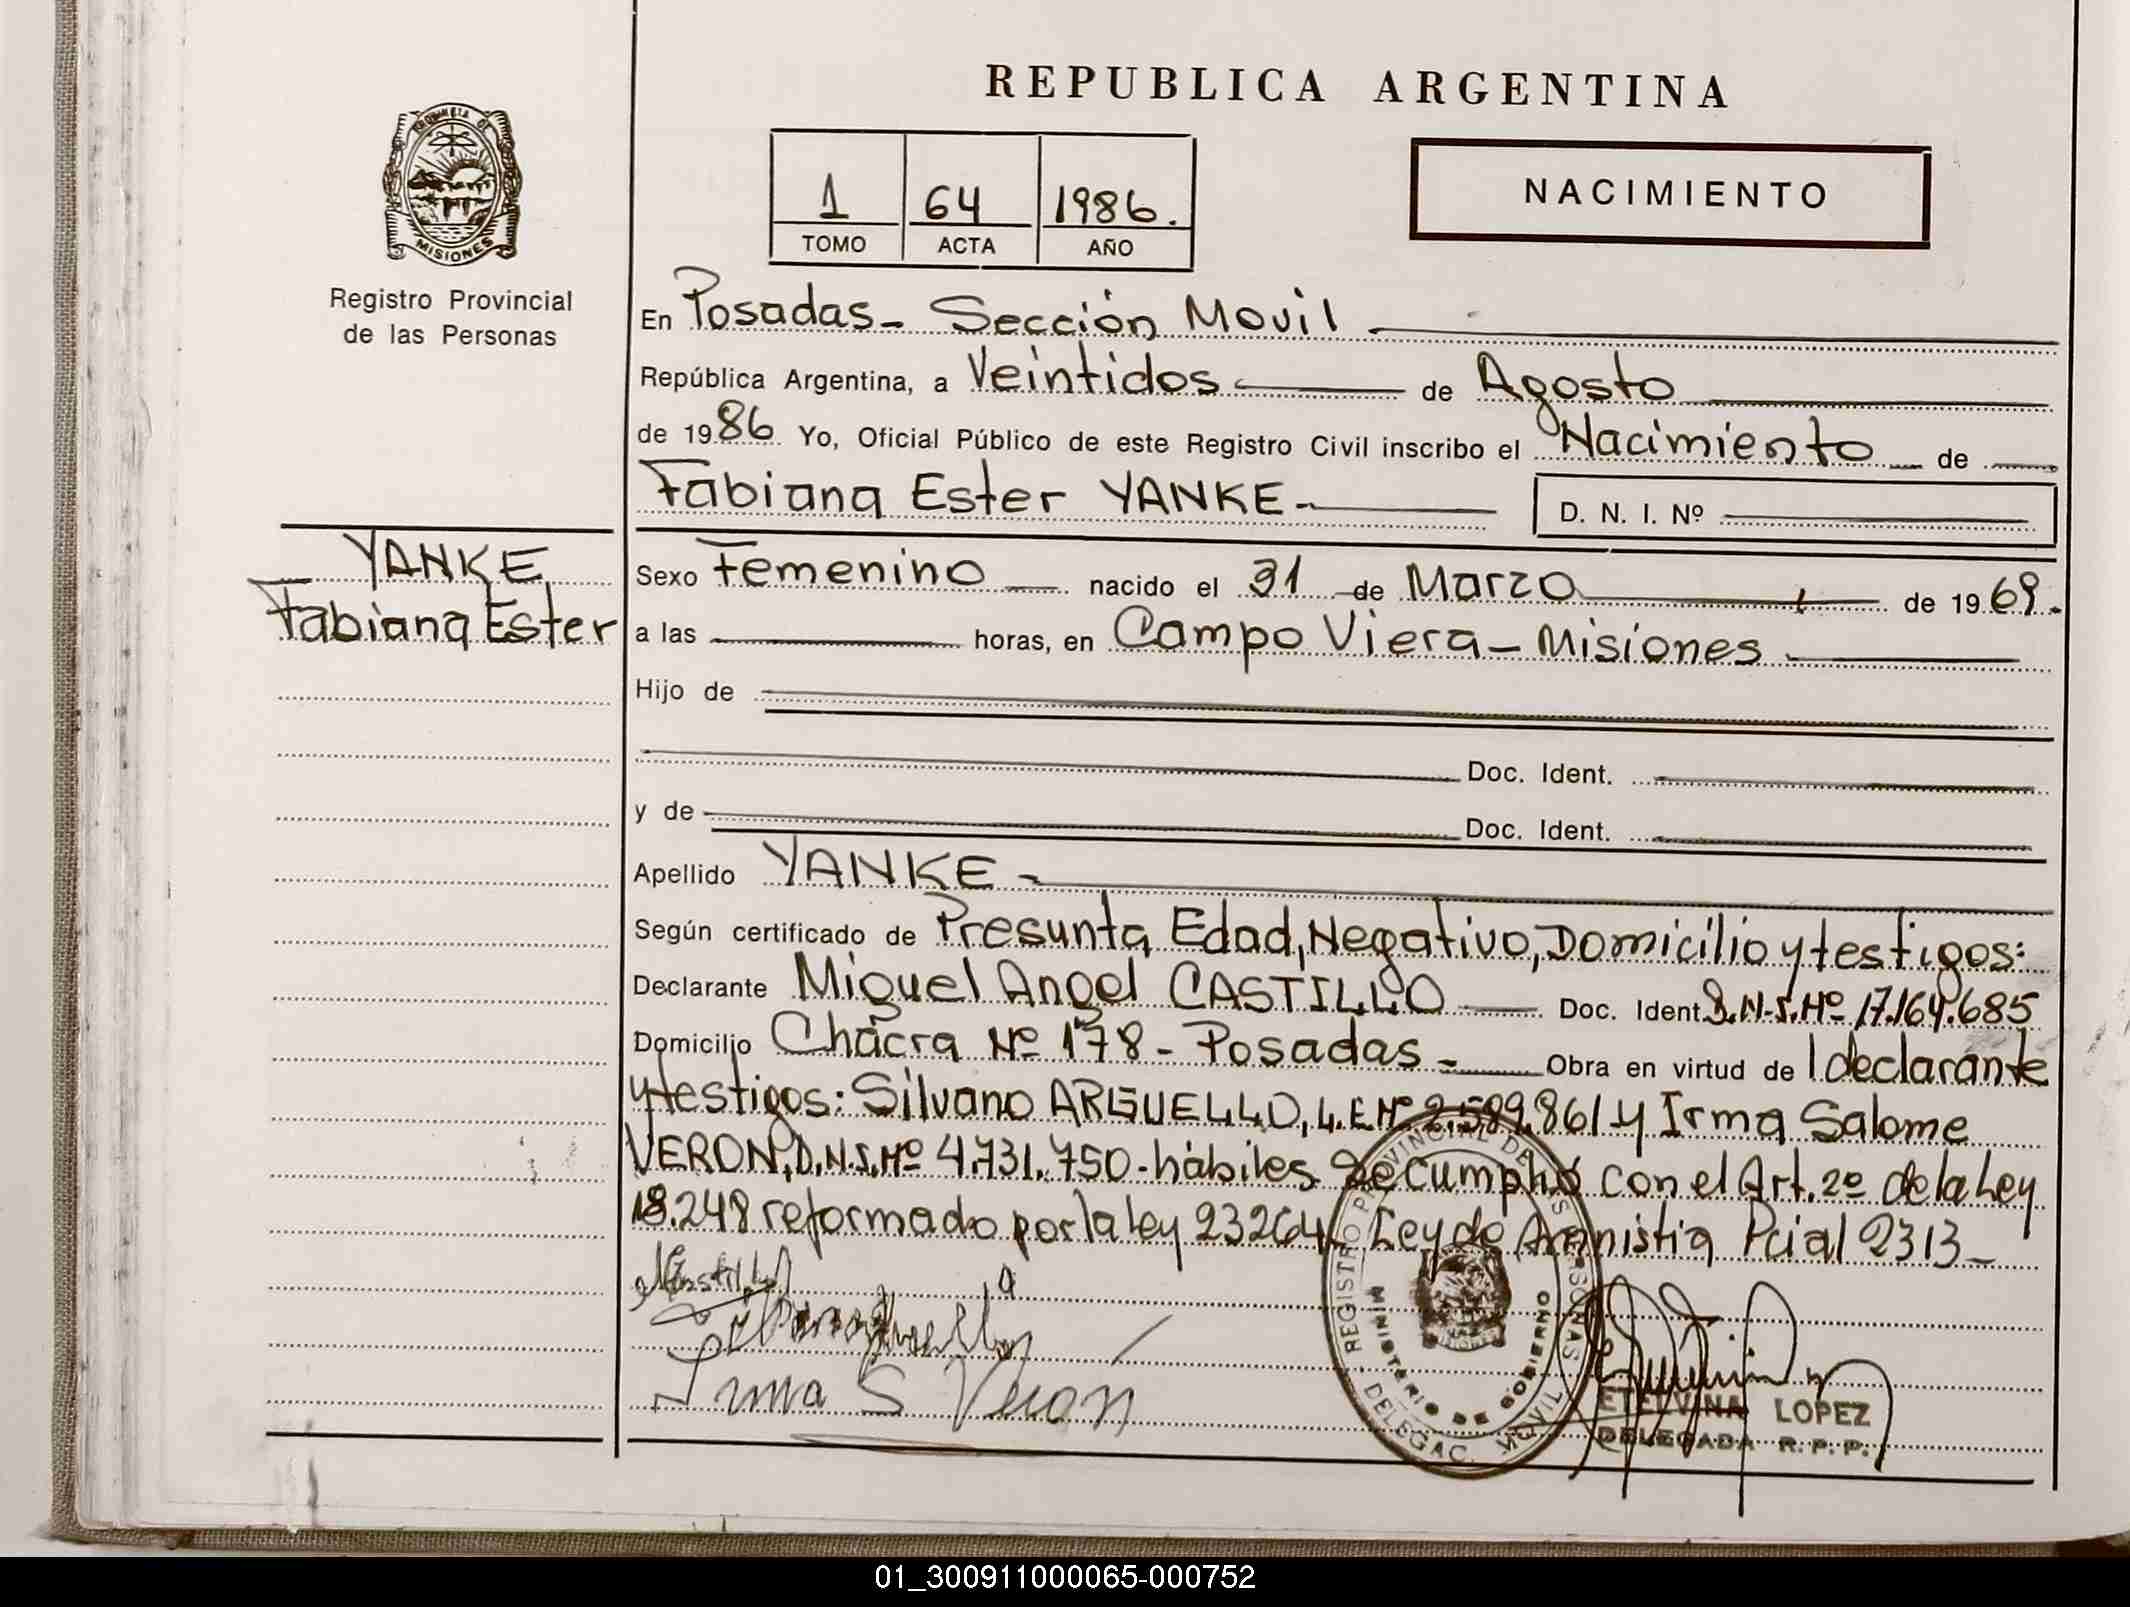 REPUBLICA ARGENTINA
PROVINCIA DE
MISIONES
Registro Provincial
de las Personas
1 64 1986.
TOMO ACTA AÑO
NACIMIENTO
En Posadas - Sección Movil
República Argentina, a Veintidos de Agosto
de 1986 Yo, Oficial Público de este Registro Civil inscribo el Nacimiento de
Fabiana Ester YANKE - D. N. I. Nº
YANKE
Fabiana Ester
Sexo Femenino nacido el 31 de Marzo de 1969.
a las horas, en Campo Viera - Misiones
Hijo de
Doc. Ident.
y de Doc. Ident.
Apellido YANKE -
Según certificado de Presunta Edad, Negativo, Domicilio y testigos:
Declarante Miguel Angel CASTILLO Doc. Ident. D.N.I. Nº 17.164.685
Domicilio Chacra Nº 178 - Posadas - Obra en virtud de l declarante
y testigos: Silvano ARGUELLO, L.E. Nº 2.589.861 y Irma Salome
VERON, D.N.I. Nº 4.731.750 - hábiles Se cumplió con el Art. 2º de la Ley
18.248 reformado por la ley 23264 Ley de Amnistia Pcial 2313 -
Irma S Veron
REGISTRO PROVINCIAL DE LAS PERSONAS
MINISTERIO DE GOBIERNO
DELEGAC. MOVIL
ETELVINA LOPEZ
DELEGADA R. P. P.
01_300911000065-000752